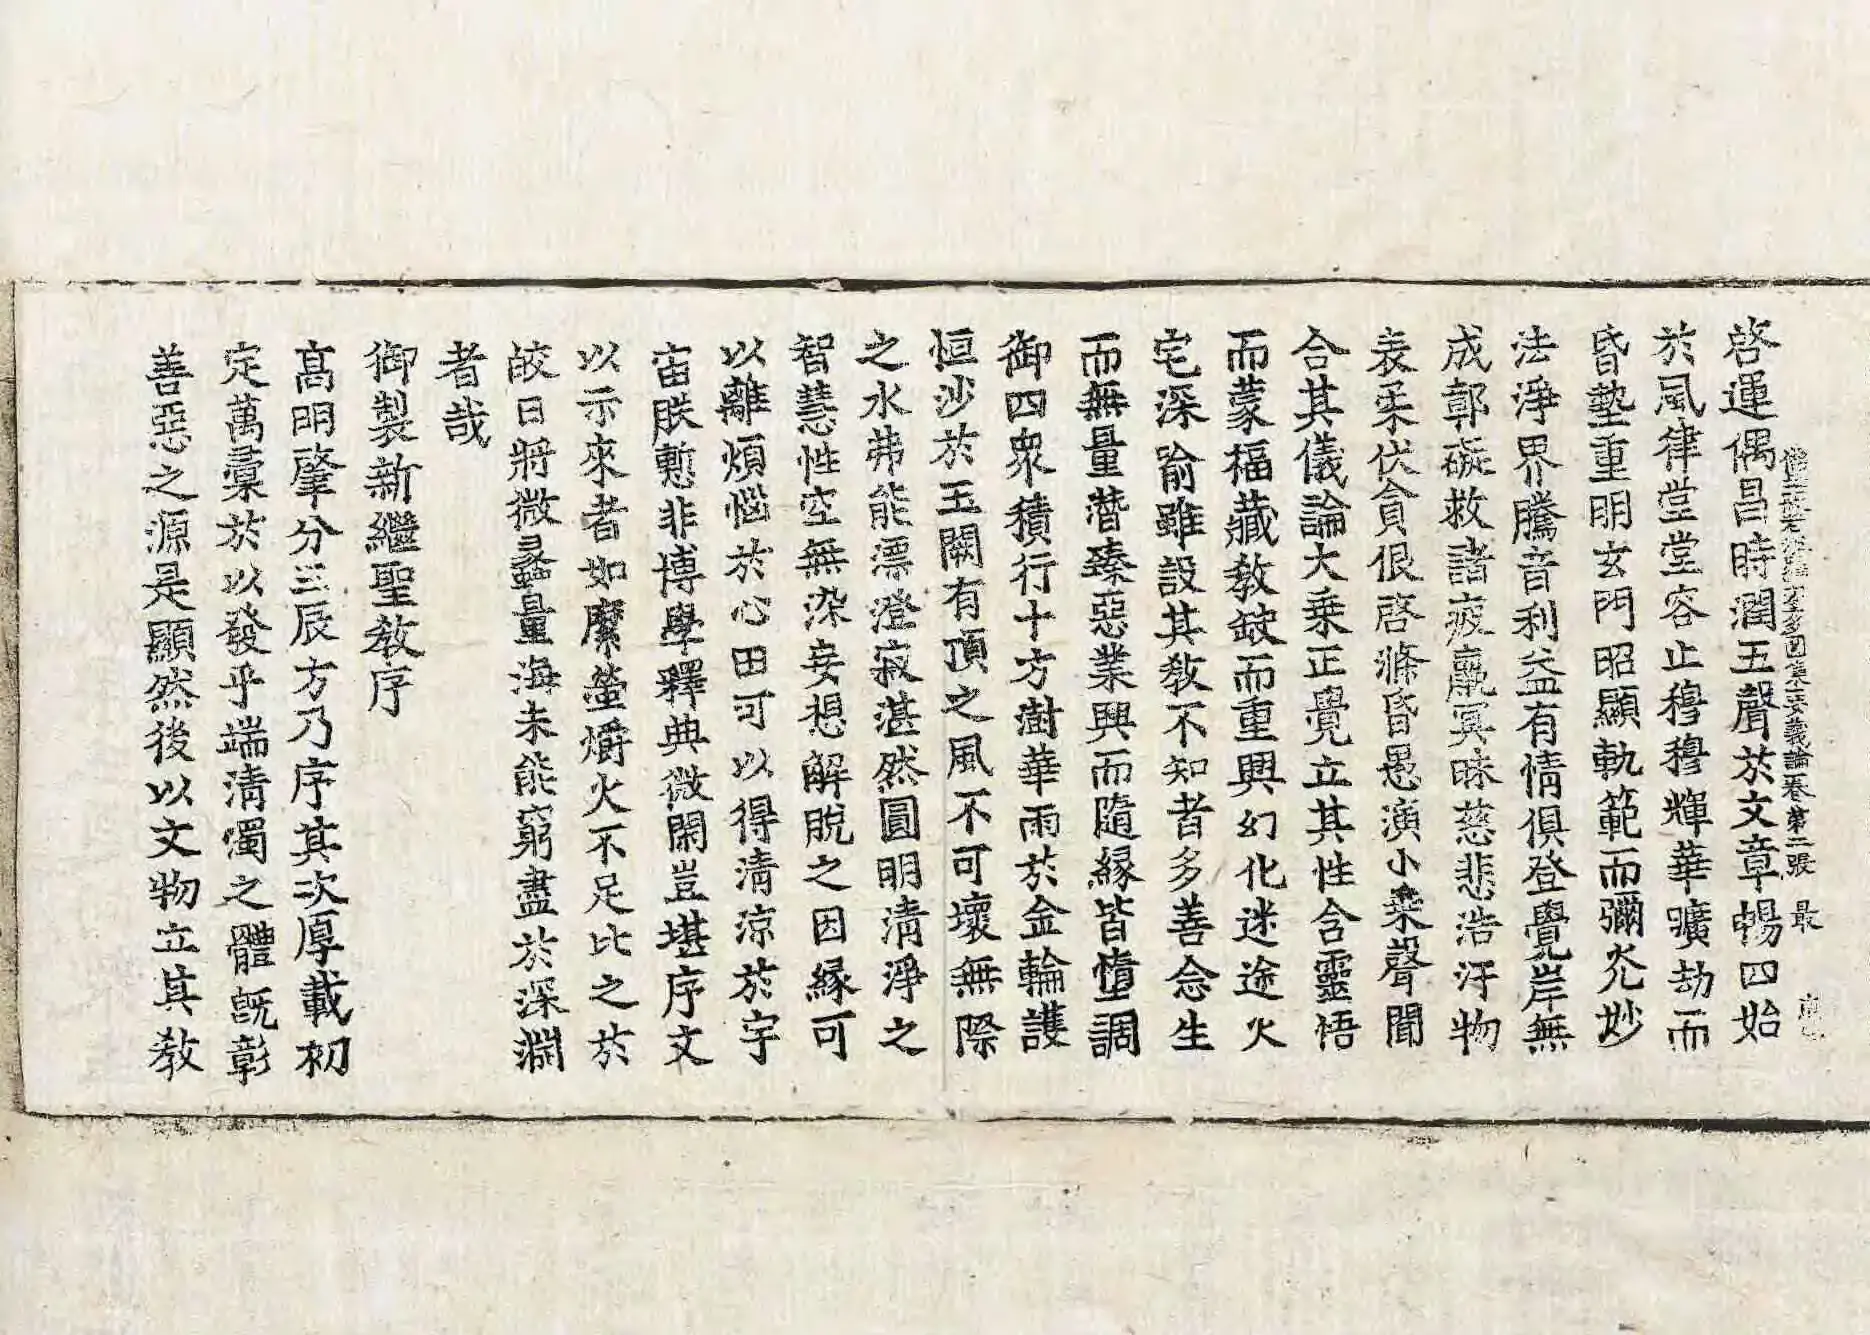 多圓集要義論卷第二張 最
啓運偶昌時潤五聲於文章暢四始
於風律堂堂容止穆穆輝華曠劫而
昏墊重明玄門昭顯軌範而彌光妙
法淨界騰音利益有情俱登覺岸無
成鄣礙救諸疲羸冥昧慈悲浩汗物
表柔伏貪佷啓滌昏愚演小乘聲聞
合其儀論大乘正覺立其性含靈悟
而蒙福藏敎鈌而重興幻化迷途火
宅深喻雖設其敎不知者多善念生
而無量潛臻惡業興而隨緣皆墮調
御四衆積行十方澍華雨於金輪護
恒沙於玉闕有頂之風不可壞無際
之水弗能漂澄寂湛然圓明清淨之
智慧性空無染妄想解脫之因緣可
以離煩惱於心田可以得清涼於宇
宙朕慙非博學釋典微閑豈堪序文
以示來者如縻螢爝火不足比之於
皎日將微蠡量海未能窮盡於深淵
者哉
御製新繼聖敎序
髙明肇分三辰方乃序其次厚載初
定萬彙於以發乎端清濁之體旣彰
善惡之源是顯然後以文物立其敎